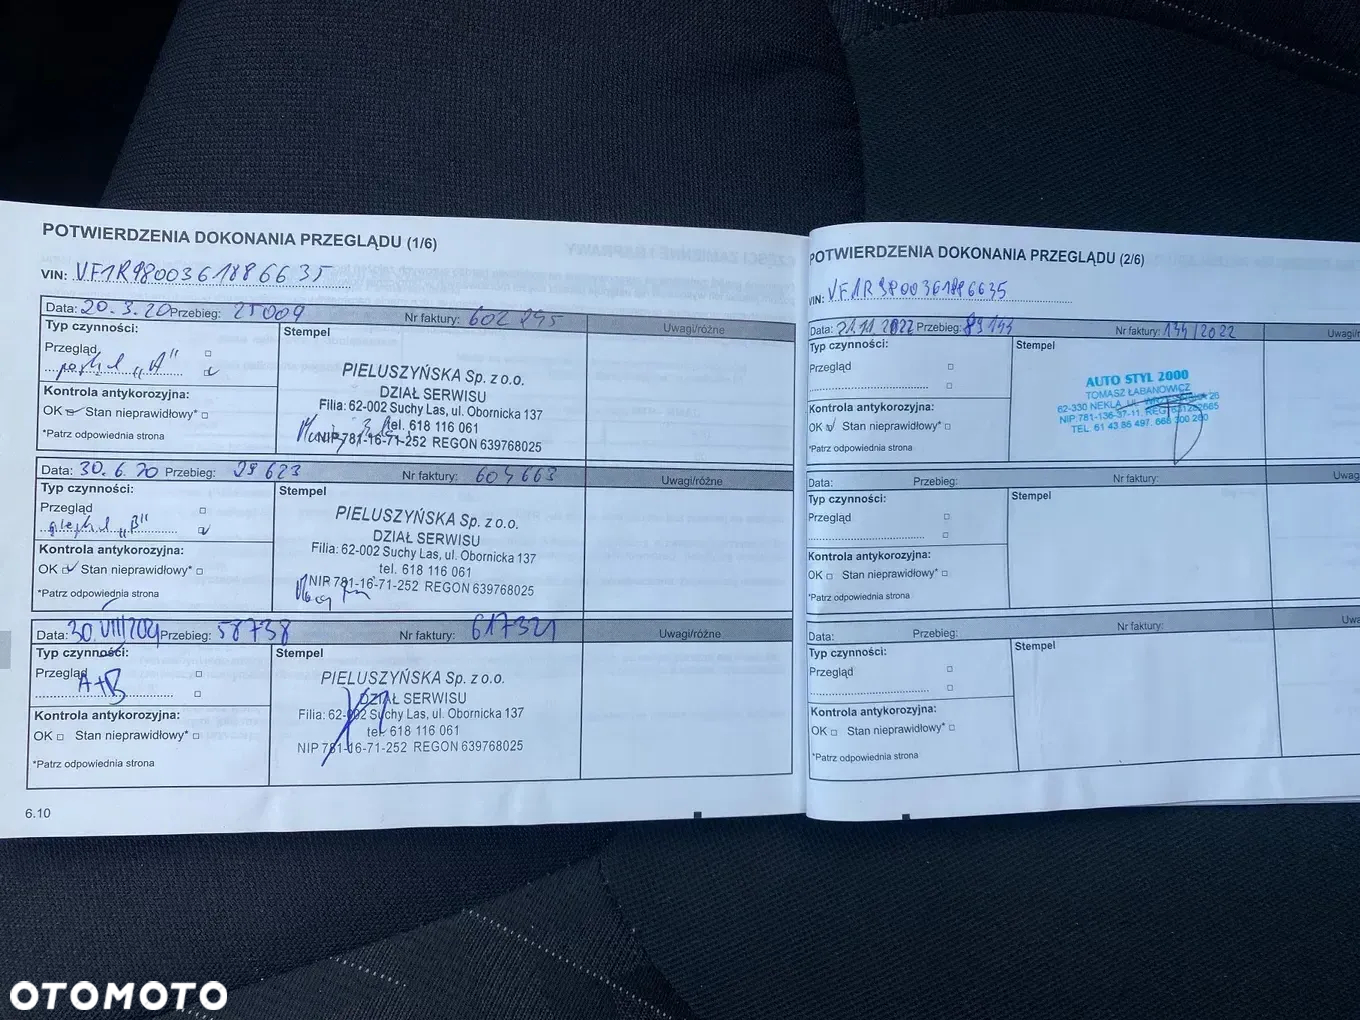 POTWIERDZENIA DOKONANIA PRZEGLĄDU (1/6)
VIN: VF1R9800361886635
Data: 20.3.20 Przebieg: 25009 Nr faktury: 602 295 Uwagi/różne
Typ czynności:
Przegląd
"A"
Kontrola antykorozyjna:
OK Stan nieprawidłowy*
*Patrz odpowiednia strona
Stempel
PIELUSZYŃSKA Sp. z o.o.
DZIAŁ SERWISU
Filia: 62-002 Suchy Las, ul. Obornicka 137
tel. 618 116 061
NIP 781-16-71-252 REGON 639768025
Data: 30.6.20 Przebieg: 29623 Nr faktury: 604663 Uwagi/różne
Typ czynności:
Przegląd
"B"
Kontrola antykorozyjna:
OK Stan nieprawidłowy*
*Patrz odpowiednia strona
Stempel
PIELUSZYŃSKA Sp. z o.o.
DZIAŁ SERWISU
Filia: 62-002 Suchy Las, ul. Obornicka 137
tel. 618 116 061
NIP 781-16-71-252 REGON 639768025
Data: 30.VIII/2021 Przebieg: 58738 Nr faktury: 617321 Uwagi/różne
Typ czynności:
Przegląd
A+B
Kontrola antykorozyjna:
OK Stan nieprawidłowy*
*Patrz odpowiednia strona
Stempel
PIELUSZYŃSKA Sp. z o.o.
DZIAŁ SERWISU
Filia: 62-002 Suchy Las, ul. Obornicka 137
tel. 618 116 061
NIP 781-16-71-252 REGON 639768025
6.10
POTWIERDZENIA DOKONANIA PRZEGLĄDU (2/6)
VIN: VF1R9800361886635
Data: 21.11.2022 Przebieg: 89144 Nr faktury: 134/2022 Uwagi/r
Typ czynności:
Przegląd
Kontrola antykorozyjna:
OK Stan nieprawidłowy*
*Patrz odpowiednia strona
Stempel
AUTO STYL 2000
TOMASZ ŁABANOWICZ
62-330 NEKLA, UL. 26
NIP:781-136-37-11, REG
TEL. 61 43 86 497. 668 300 260
Data: Przebieg: Nr faktury: Uwag
Typ czynności:
Przegląd
Kontrola antykorozyjna:
OK Stan nieprawidłowy*
*Patrz odpowiednia strona
Stempel
Data: Przebieg: Nr faktury: Uwa
Typ czynności:
Przegląd
Kontrola antykorozyjna:
OK Stan nieprawidłowy*
*Patrz odpowiednia strona
Stempel
OTOMOTO